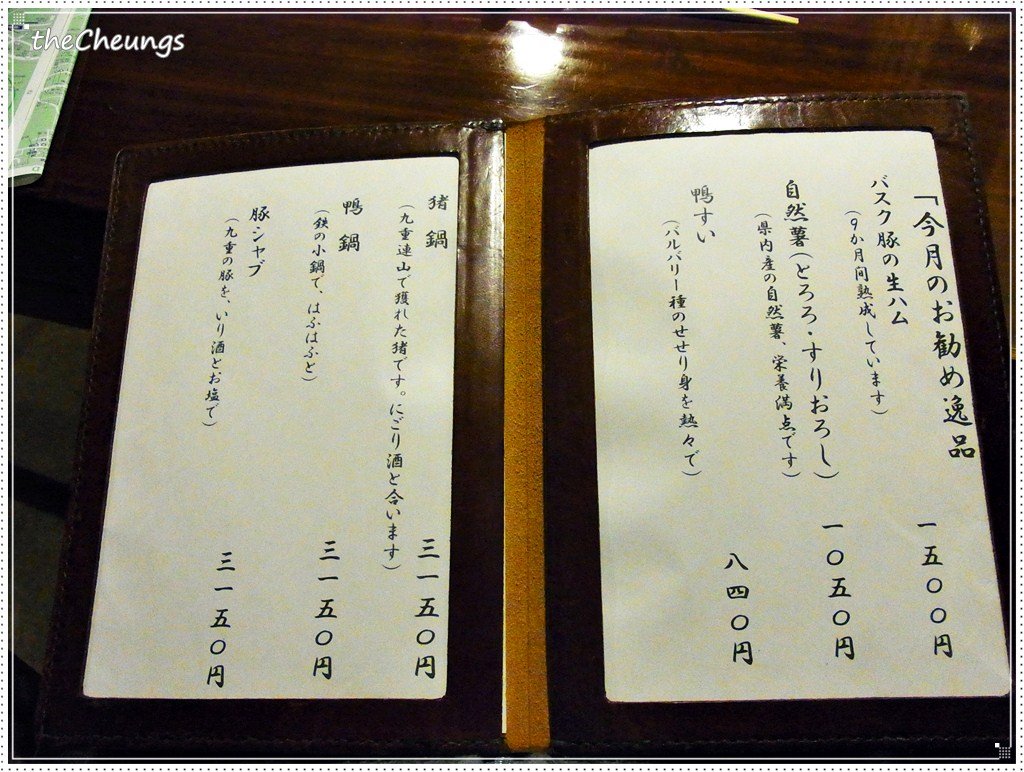 theCheungs
「今月のお勧め逸品
バスク豚の生ハム
(9か月間熟成しています)
一五〇〇円
自然薯(とろろ・すりおろし)
(県内産の自然薯、栄養満点です)
一〇五〇円
鴨すい
(バルバリー種のせせり身を熱々で)
八四〇円
猪鍋
(九重連山で獲れた猪です。にごり酒と合います)
三一五〇円
鴨鍋
(鉄の小鍋で、はふはふと)
三一五〇円
豚シャブ
(九重の豚を、いり酒とお塩で)
三一五〇円